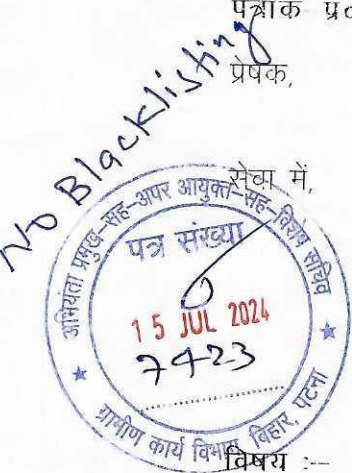 पत्रांक प्र०
No Blacklisting
प्रेषक,
सेवा में,
अभियंता प्रमुख-सह-अपर आयुक्त-सह-विशेष सचिव
पत्र संख्या
15 JUL 2024
7423
ग्रामीण कार्य विभाग, बिहार, पटना
विषय :--